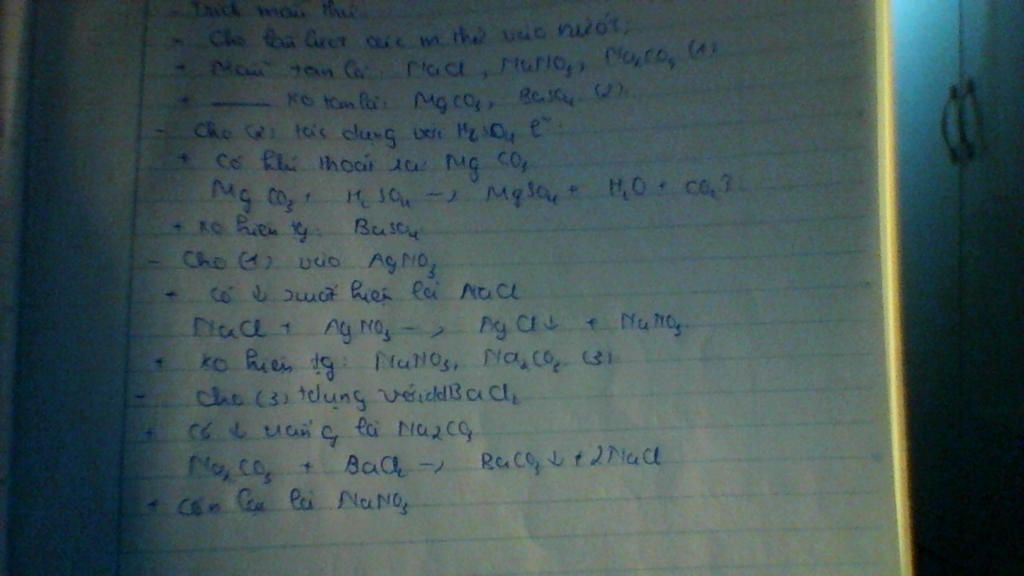 - Trích mẫu thử
- Cho lần lượt các m. thử vào nước:
+ Mẫu tan là: NaCl, NaNO3, Na2CO3 (1)
+ ____ ko tan là: MgCO3, BaSO4 (2).
- Cho (2) tác dụng với H2SO4 l~:
+ Có khí thoát ra: MgCO3
MgCO3 + H2SO4 -> MgSO4 + H2O + CO2↑
+ ko hiện tg: BaSO4
- Cho (1) vào AgNO3
+ Có ↓ xuất hiện là NaCl
NaCl + AgNO3 -> AgCl↓ + NaNO3
+ ko hiện tg: NaNO3, Na2CO3 (3)
- Cho (3) tdụng với ddBaCl2
+ Có ↓ là Na2CO3
Na2CO3 + BaCl2 -> BaCO3↓ + 2NaCl
+ Còn lại là NaNO3